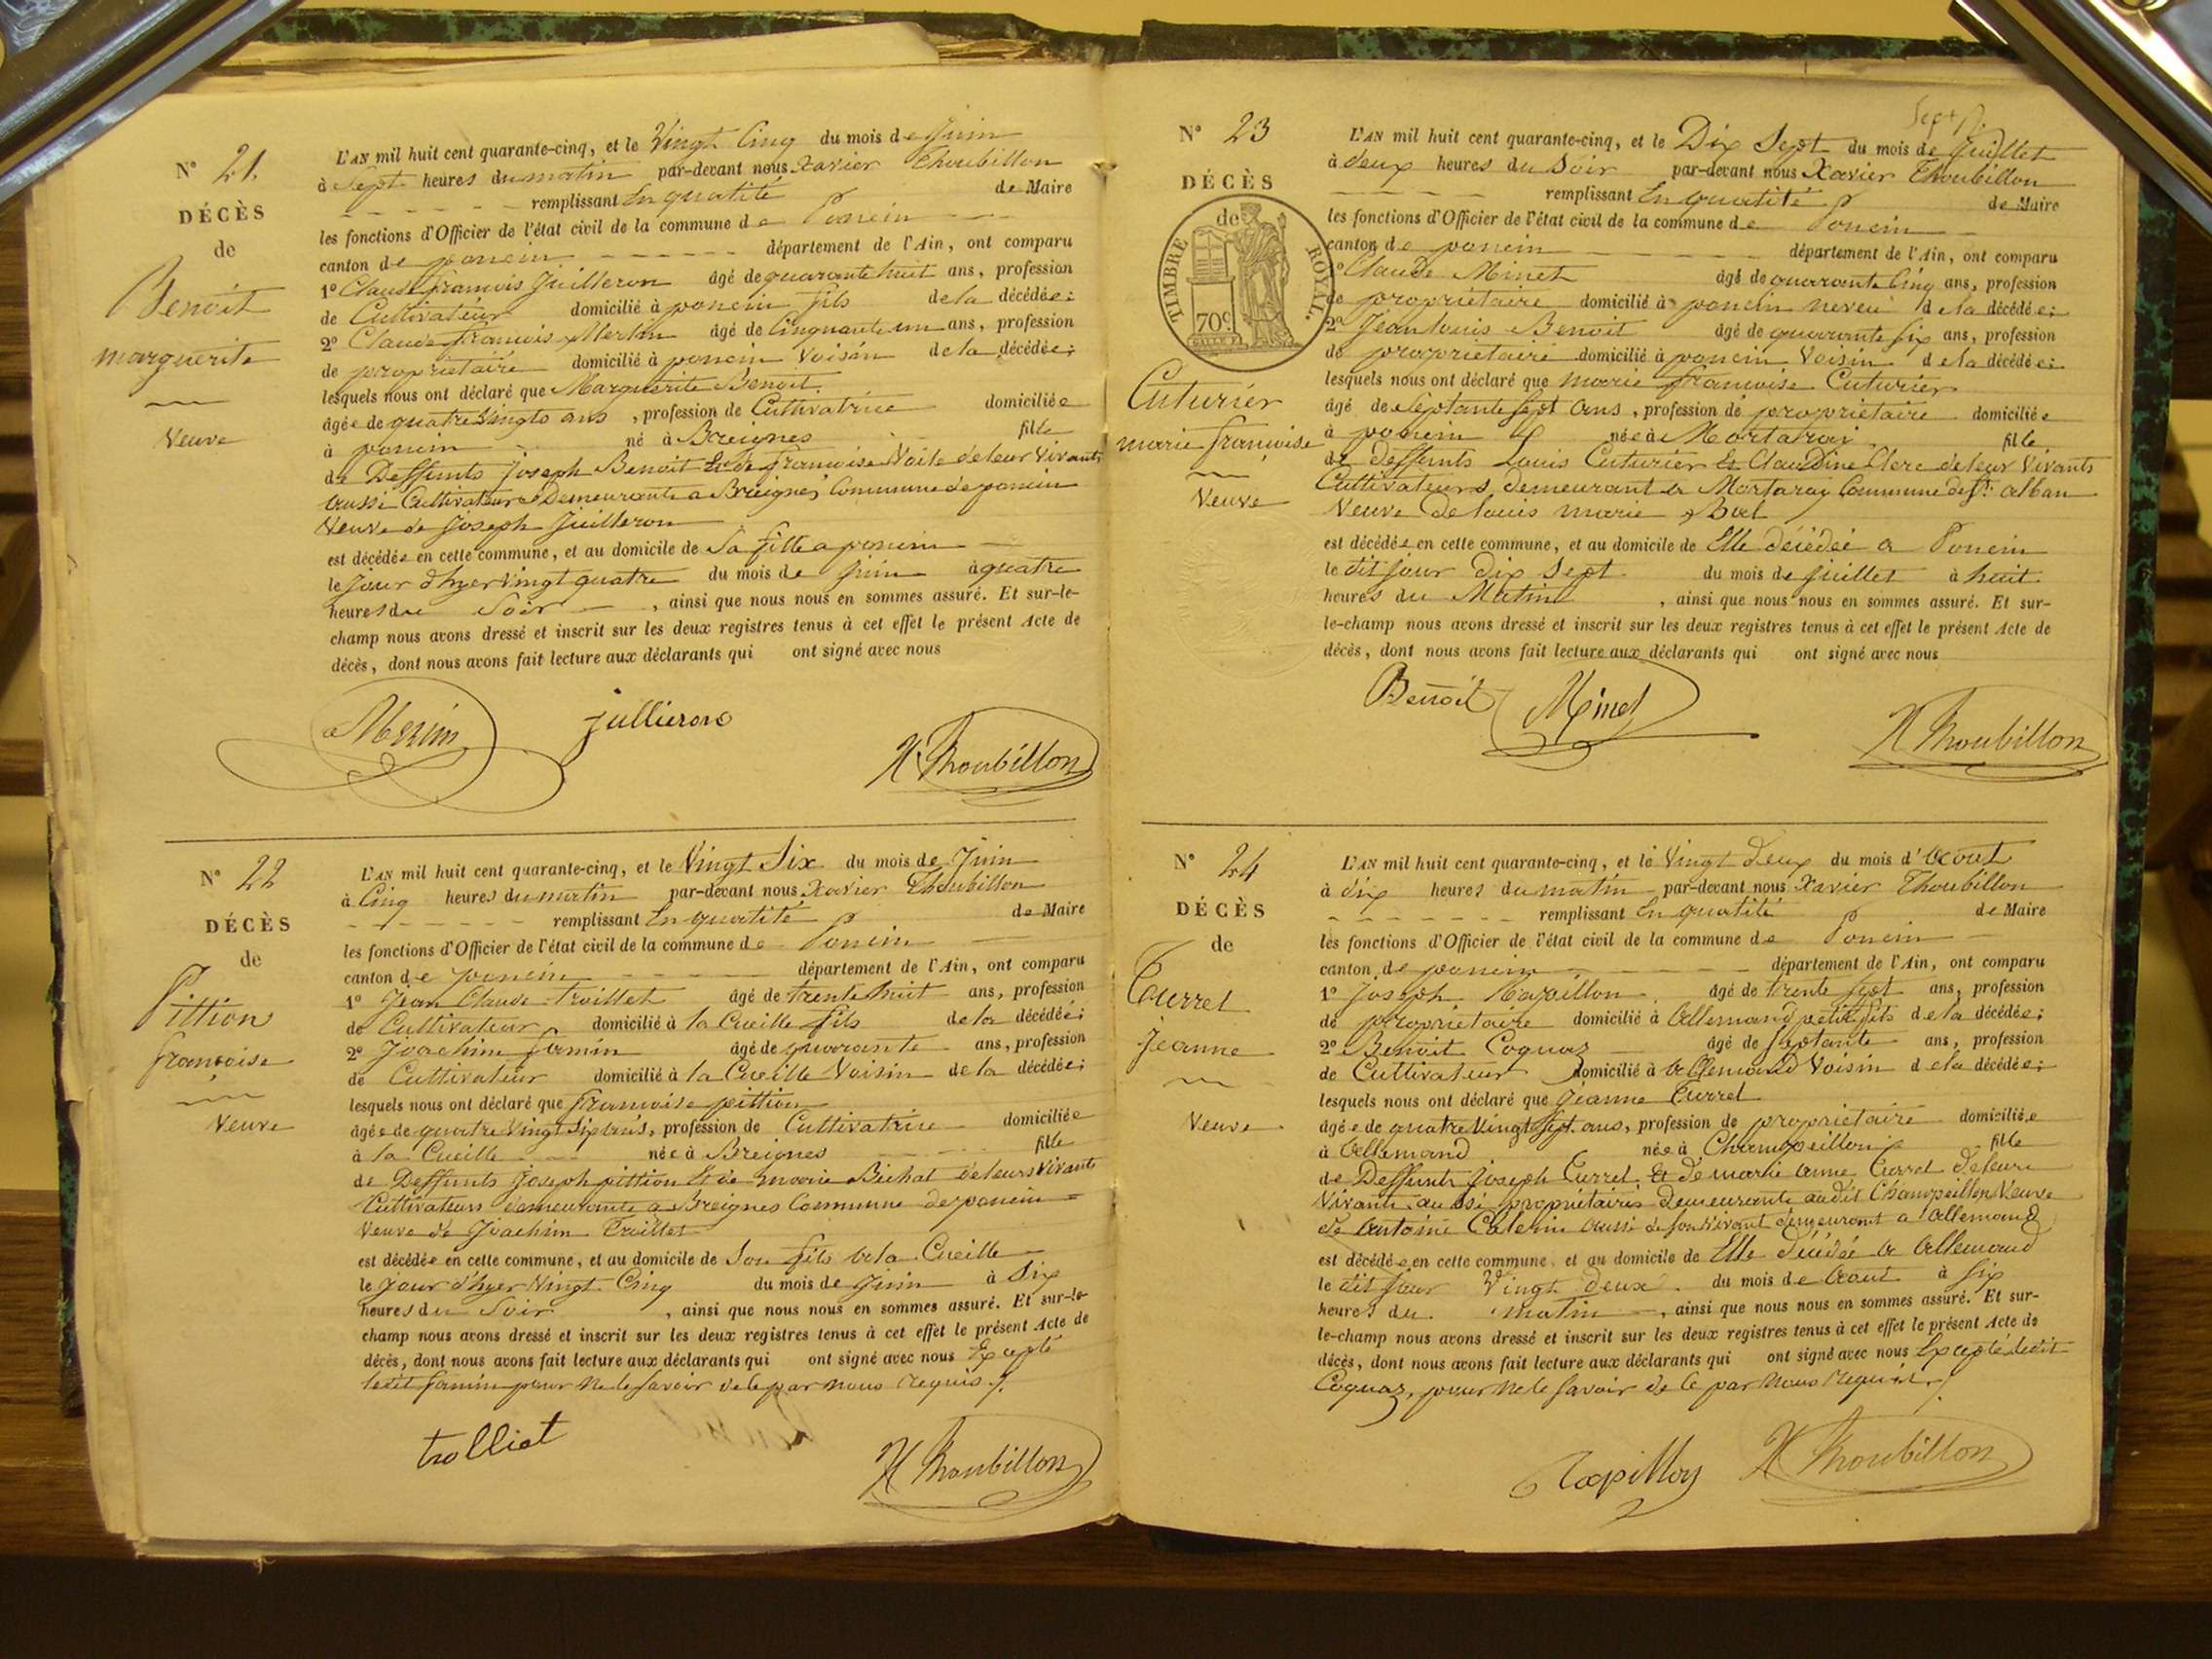 N° 21.
DÉCÈS
de
Benoit
marguerite
Veuve
L'AN mil huit cent quarante-cinq, et le Vingt Cinq du mois de Juin
à Sept heures du matin par-devant nous Xavier Thoubillon
remplissant En qualité de Maire
les fonctions d'Officier de l'état civil de la commune de Poncin
canton de poncin département de l'Ain, ont comparu
1° Claude francois Juilleron âgé de quarante huit ans, profession
de Cultivateur domicilié à poncin fils de la décédée;
2° Claude francois Merlin âgé de Cinquante un ans, profession
de propriétaire domicilié à poncin Voisin de la décédée;
lesquels nous ont déclaré que Marguerite Benoit
âgée de quatre Vingts ans, profession de Cultivatrice domiciliée
à poncin né à Breignes fille
de Deffunts Joseph Benoit Et de francoise de leur Vivants
aussi Cultivateurs Demeurants a Breignes Commune de poncin
Veuve de Joseph Juilleron
est décédée en cette commune, et au domicile de Sa fille a poncin
le jour d'hyer Vingt quatre du mois de Juin à quatre
heures du Soir, ainsi que nous nous en sommes assuré. Et sur-le-
champ nous avons dressé et inscrit sur les deux registres tenus à cet effet le présent Acte de
décès, dont nous avons fait lecture aux déclarants qui ont signé avec nous
jullieron
X Thoubillon
N° 22
DÉCÈS
de
Pittion
francoise
Veuve
L'AN mil huit cent quarante-cinq, et le Vingt Six du mois de Juin
à Cinq heures du matin par-devant nous Xavier Thoubillon
remplissant En qualité de Maire
les fonctions d'Officier de l'état civil de la commune de Poncin
canton de poncin département de l'Ain, ont comparu
1° Jean Claude Troillet âgé de trente huit ans, profession
de Cultivateur domicilié à la Cueille fils de la décédée;
2° Joachim Jamin âgé de quarante ans, profession
de Cultivateur domicilié à la Cueille Voisin de la décédée;
lesquels nous ont déclaré que francoise pittion
âgée de quatre Vingt Six ans, profession de Cultivatrice domiciliée
à la Cueille née à Breignes fille
de Deffunts Joseph pittion Et de marie Bichat de leurs Vivants
Cultivateurs demeurants a Breignes Commune de poncin
Veuve de Joachim Troillet
est décédée en cette commune, et au domicile de Son fils a la Cueille
le jour d'hyer Vingt Cinq du mois de Juin à Six
heures du Soir, ainsi que nous nous en sommes assuré. Et sur-le-
champ nous avons dressé et inscrit sur les deux registres tenus à cet effet le présent Acte de
décès, dont nous avons fait lecture aux déclarants qui ont signé avec nous Excepté
ledit Jamin pour ne le savoir de ce par nous requis
trolliet
X Thoubillon
N° 23
DÉCÈS
de
TIMBRE ROYAL.
70c
Cuturier
marie francoise
Veuve
L'AN mil huit cent quarante-cinq, et le Dix Sept du mois de Juillet
à deux heures du Soir par-devant nous Xavier Thoubillon
remplissant En qualité de Maire
les fonctions d'Officier de l'état civil de la commune de Poncin
canton de poncin département de l'Ain, ont comparu
1° Claude Minet âgé de quarante Cinq ans, profession
de propriétaire domicilié à poncin neveu de la décédée;
2° Jean louis Benoit âgé de quarante six ans, profession
de propriétaire domicilié à poncin Voisin de la décédée;
lesquels nous ont déclaré que marie francoise Cuturier
âgé de Septante Sept ans, profession de propriétaire domiciliée
à poncin née à Mortaray fille
de deffunts Louis Cuturier Et Claudine Clerc de leur Vivants
Cultivateurs demeurant a Mortaray Commune de St. alban
Veuve de louis marie
est décédée en cette commune, et au domicile de Elle décédée a Poncin
le dit jour Dix Sept du mois de juillet à huit
heures du Matin, ainsi que nous nous en sommes assuré. Et sur-
le-champ nous avons dressé et inscrit sur les deux registres tenus à cet effet le présent Acte de
décès, dont nous avons fait lecture aux déclarants qui ont signé avec nous
Benoit Minet
X Thoubillon
N° 24
DÉCÈS
de
Turrel
jeanne
Veuve
L'AN mil huit cent quarante-cinq, et le Vingt Deux du mois d'Aout
à dix heures du matin par-devant nous Xavier Thoubillon
remplissant En qualité de Maire
les fonctions d'Officier de l'état civil de la commune de Poncin
canton de poncin département de l'Ain, ont comparu
1° Joseph âgé de trente Sept ans, profession
de propriétaire domicilié à Allemand petit fils de la décédée;
2° Benoit Coquaz âgé de Septante ans, profession
de Cultivateur domicilié à Allemand Voisin de la décédée;
lesquels nous ont déclaré que Jeanne Turrel
âgée de quatre Vingt Sept ans, profession de propriétaire domiciliée
à Allemand née à Champeillon fille
de Deffunts Joseph Turrel Et de marie anne Turrel de leurs
Vivants aussi propriétaires Demeurants audit Champeillon Veuve
de Antoine aussi de son vivant demeurant a Allemand
est décédée en cette commune, et au domicile de Elle Décédée a Allemand
le dit jour Vingt deux du mois de Aout à Six
heures du matin, ainsi que nous nous en sommes assuré. Et sur-
le-champ nous avons dressé et inscrit sur les deux registres tenus à cet effet le présent Acte de
décès, dont nous avons fait lecture aux déclarants qui ont signé avec nous Excepté ledit
Coquaz, pour ne le savoir de ce par nous requis
X Thoubillon